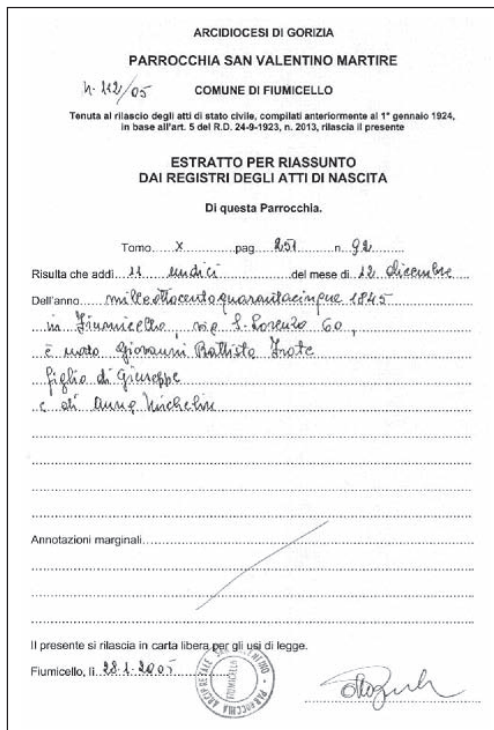 ARCIDIOCESI DI GORIZIA
PARROCCHIA SAN VALENTINO MARTIRE
n. 112/05 COMUNE DI FIUMICELLO
Tenuta al rilascio degli atti di stato civile, compilati anteriormente al 1° gennaio 1924,
in base all'art. 5 del R.D. 24-9-1923, n. 2013, rilascia il presente
ESTRATTO PER RIASSUNTO
DAI REGISTRI DEGLI ATTI DI NASCITA
Di questa Parrocchia.
Tomo X pag. 251 n. 92
Risulta che addì 11 undici del mese di 12 dicembre
Dell'anno milleottocentoquarantacinque 1845
in Fiumicello, via S. Lorenzo 60,
è nato Giovanni Battista
figlio di Giuseppe
e di Anna
Annotazioni marginali
Il presente si rilascia in carta libera per gli usi di legge.
Fiumicello, lì 28.1.2005
PARROCCHIA ARCIPRETALE
FIUMICELLO